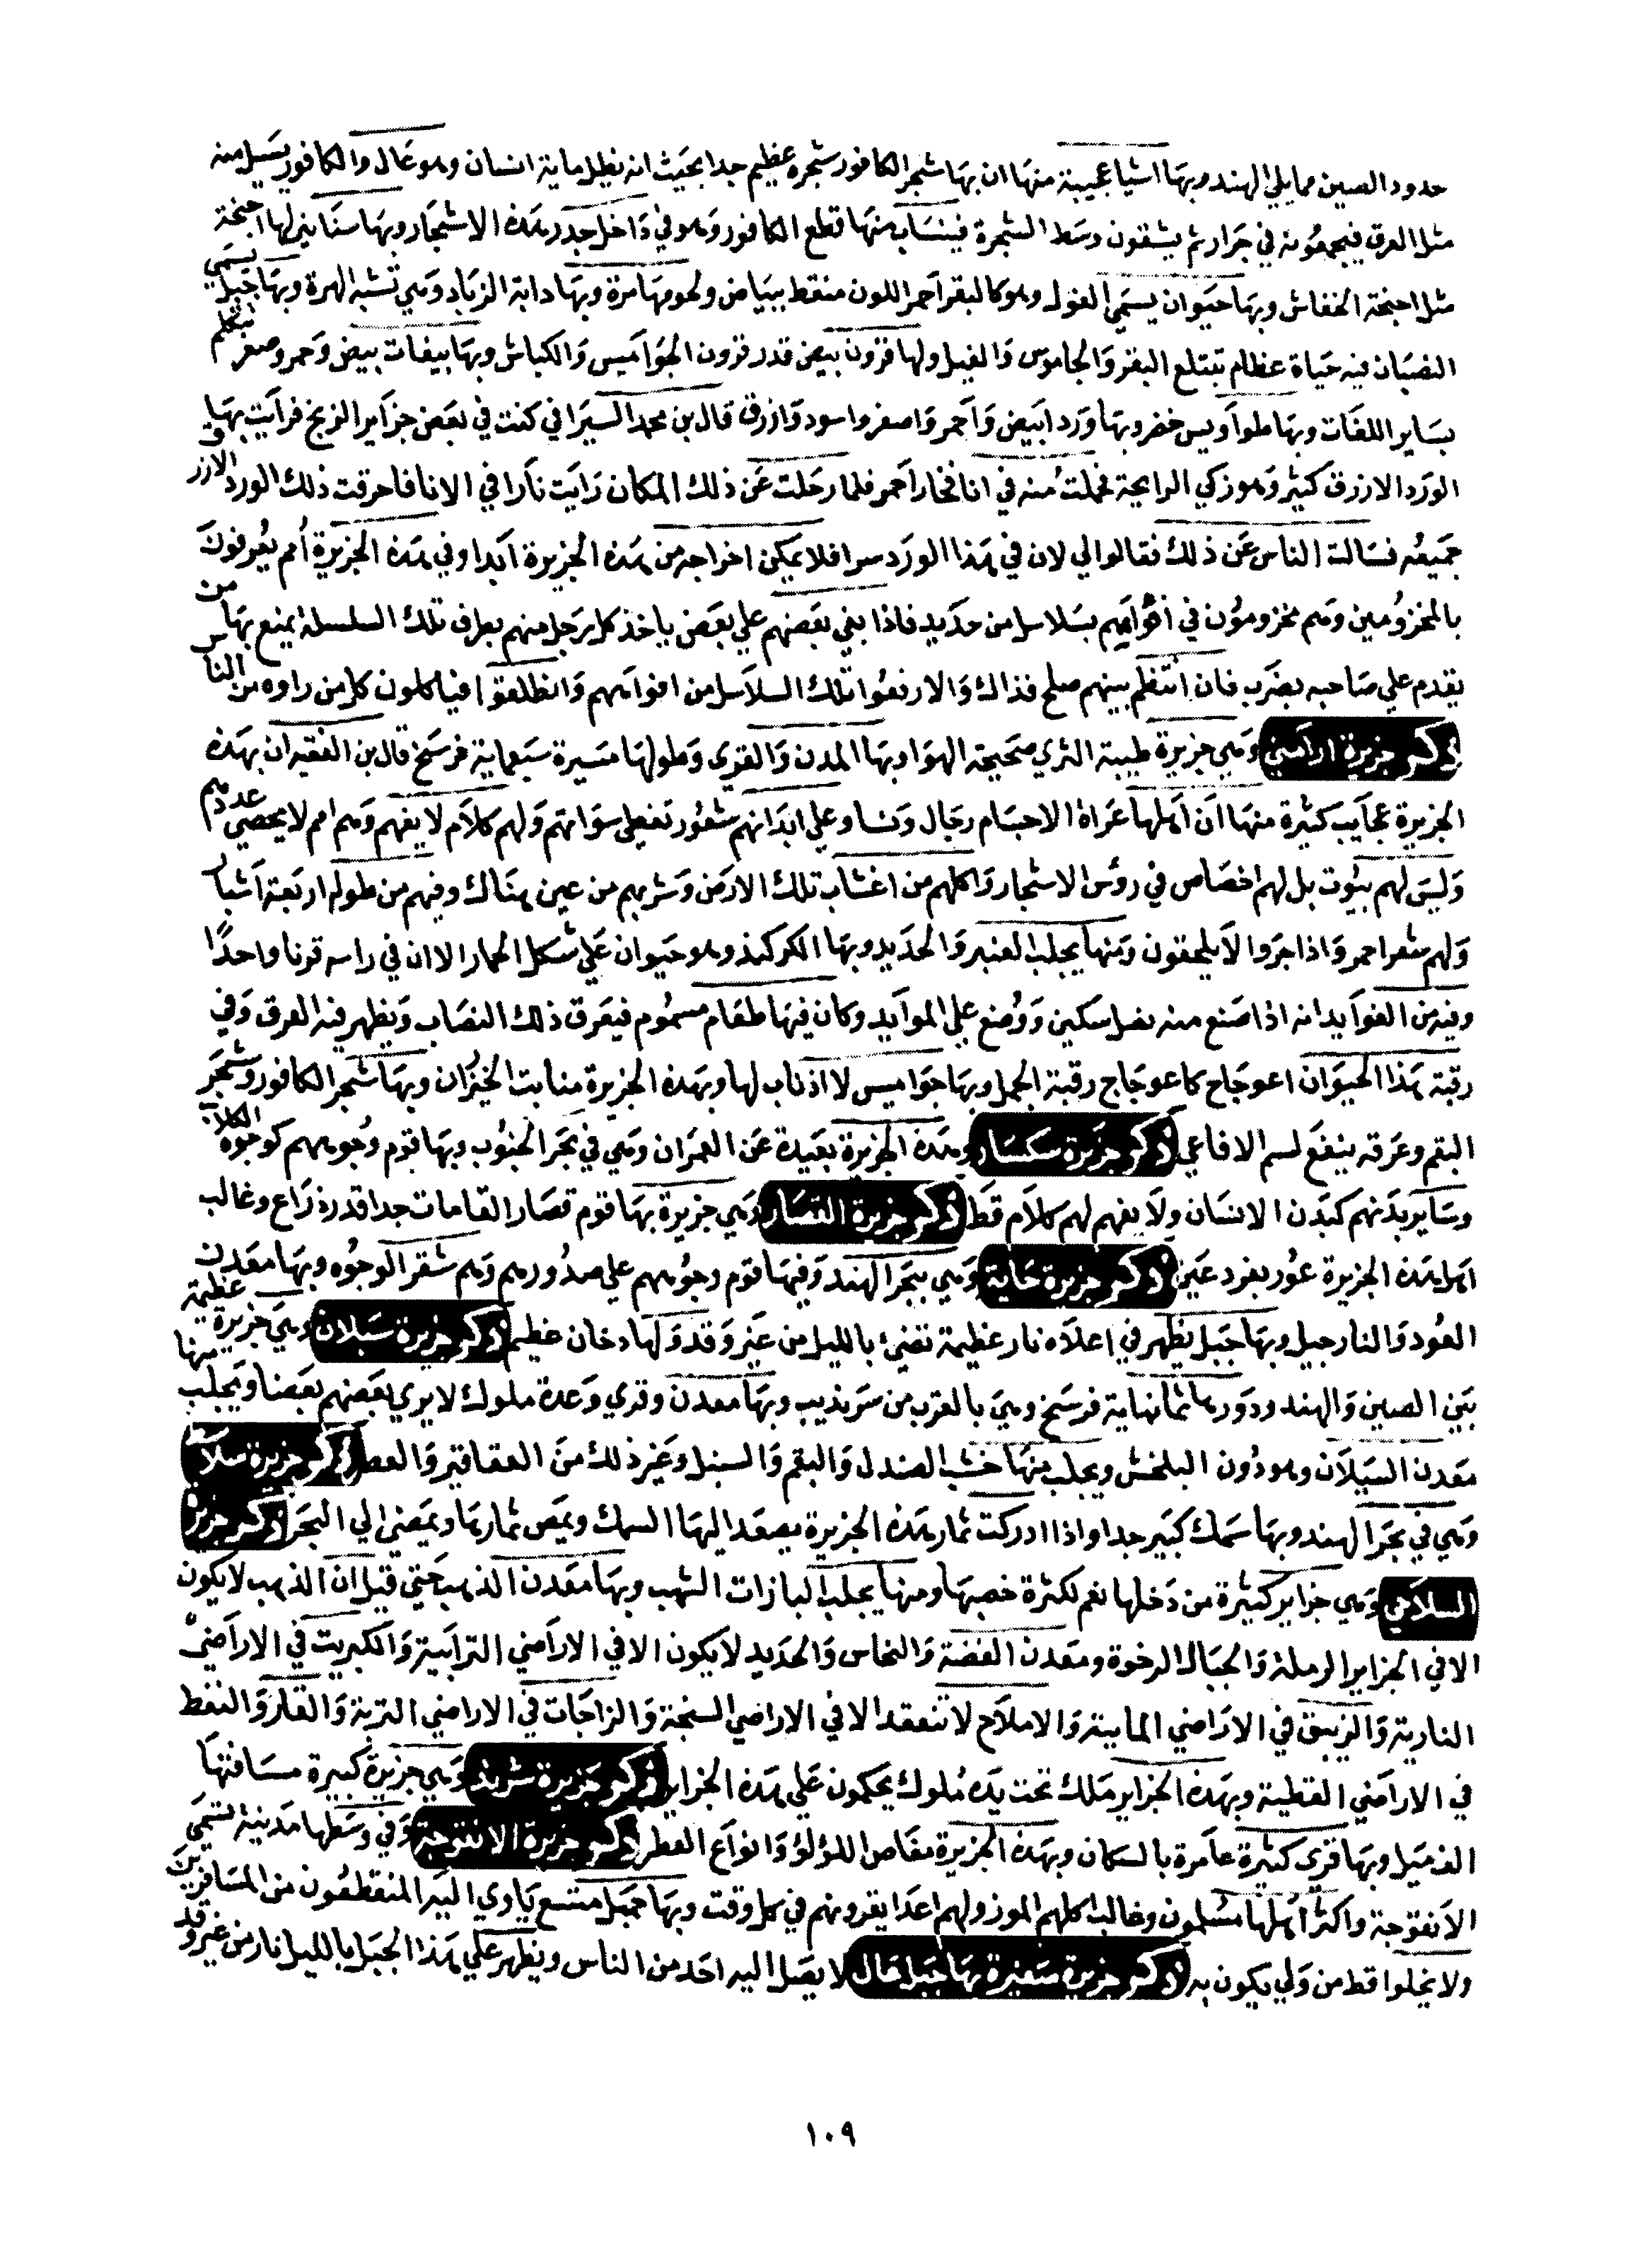 حدود الصين مما يلي الهند وبها اشيا عجيبة منها ان بها شجر الكافور شجره عظيم جدا بحيث انه يظل ماية انسان وهو عال والكافور يسيل منه
مثل العرق فيجمعونه في جرار ثم يشقون وسط الشجرة فينساب منها قطع الكافور وهو في داخل جدر هذه الاشجار وبها سنانير لها اجنحة
مثل اجنحة الخفاش وبها حيوان يسمي الغول وهو كالبقر احمر اللون منقط ببياض ولحومها مرة وبها دابة الزباد وهي تشبه الهرة وبها جبل يسمي
النصبان فيه حياة عظام تبتلع البقر والجاموس والفيل ولها قرون بيض قدر قرون الجواميس والكباش وبها ببغات بيض وحمر وصفر تتكلم
بساير اللغات وبها طواويس خضر وبها ورد ابيض واحمر واصفر واسود وازرق قال بن محمد السيرافي كنت في بعض جزاير الزنج فرايت بها
الورد الازرق كثير وهو زكي الرايحة فحملت منه في انا فخار احمر فلما رحلت عن ذلك المكان رايت نارا في الانا فاحرقت ذلك الورد الازرق
جميعه فسالت الناس عن ذلك فقالوا لي لان في هذا الورد سرا فلا يمكن اخراجه من هذه الجزيرة ابدا وفي هذه الجزيرة امم يعرفون
بالمخزومين وهم مخزومون في افواههم بسلاسل من حديد فاذا بغي بعضهم علي بعض ياخذ كل رجل منهم بطرف تلك السلسلة يمنع بها من
يقدم علي صاحبه بضرب فان انتظم بينهم صلح فذاك والا رفعوا تلك السلاسل من افواههم وانطلقوا فياكلون كل من راوه من الناس
ذكر جزيرة ارامني وهي جزيرة طيبة الثري صحيحة الهوا وبها المدن والقري وطولها مسيرة سبعماية فرسخ قال بن الفقيه ان بهذه
الجزيرة عجايب كثيرة منها ان اهلها عراة الاجسام رجال ونسا وعلي ابدانهم شعور تغطي سواتهم ولهم كلام لا يفهم وهم امم لا يحصي عددهم
وليس لهم بيوت بل لهم اخصاص في روس الاشجار واكلهم من اعشاب تلك الارض وشربهم من عين هناك وفيهم من طوله اربعة اشبار
ولهم شعر احمر واذا جروا لا يلحقون ومنها يجلب العنبر والحديد وبها الكركند وهو حيوان علي شكل الحمار الا ان في راسه قرنا واحدا
وفيه من الفوايد انه اذا صنع منه نصل سكين ووضع علي الموايد وكان فيها طعام مسموم فيعرق ذلك النصاب ويظهر فيه العرق وفي
رقبة هذا الحيوان اعوجاج كاعوجاج رقبة الجمل وبها جواميس لا اذناب لها وبهذه الجزيرة منابت الخيزران وبها شجر الكافور وشجر
البقم وعرقه ينفع لسم الافاعي ذكر جزيرة سكسار وهذه الجزيرة بعيدة عن العمران وهي في بحر الجنوب وبها قوم وجوههم كوجوه الكلاب
وساير بدنهم كبدن الانسان ولا يفهم لهم كلام قط ذكر جزيرة القصار وهي جزيرة بها قوم قصار القامات جدا قدر ذراع وغالب
اهل هذه الجزيرة عور بفرد عين ذكر جزيرة جابة وهي ببحر الهند وفيها قوم وجوههم علي صدورهم وهم شقر الوجوه وبها معدن
العود والنارجيل وبها جبل يظهر في اعلاه نار عظيمة تضئ بالليل من غير وقد ولها دخان عظيم ذكر جزيرة سيلان وهي جزيرة عظيمة
بين الصين والهند ودورها ثمانماية فرسخ وهي بالقرب من سرنديب وبها معدن وقري وعدة ملوك لا يري بعضهم بعضا ويجلب منها
معدن السيلان وهو دون البلخش ويجلب منها خشب الصندل والبقم والسنبل وغير ذلك من العقاقير والعطر ذكر جزيرة سلامت
وهي في بحر الهند وبها سمك كبير جدا واذا ادركت ثمار هذه الجزيرة يصعد اليها السمك ويمص ثمارها ويمضي الي البحر ذكر جزيرة
السلاهي وهي جزاير كثيرة من دخلها نعم لكثرة خصبها ومنها يجلب البازات الشهب وبها معدن الذهب حتي قيل ان الذهب لا يكون
الا في الجزاير الرملة والجبال الرخوة ومعدن الفضة والنحاس والحديد لا يكون الا في الاراضي الترابية والكبريت في الاراضي
النارية والزيبق في الاراضي المايية والاملاح لا تنعقد الا في الاراضي السبخة والزاجات في الاراضي التربة والقار والنفط
في الاراضي القطية وبهذه الجزاير ملك تحت يده ملوك يحكمون علي هذه الجزاير ذكر جزيرة وهي جزيرة كبيرة مسافتها
الف ميل وبها قري كثيرة عامرة بالسكان وبهذه الجزيرة مغاص اللؤلؤ وانواع العطر ذكر جزيرة الانفوجة وفي وسطها مدينة تسمي
الانفوجة واكثر اهلها مسلمون وغالب اكلهم الموز ولهم اعدا يغزونهم في كل وقت وبها جبل متسع ياوي اليه المنقطعون من المسافرين
ولا يخلوا قط من ولي يكون به ذكر جزيرة صغيرة بها جبل عال لا يصل اليه احد من الناس ويظهر علي هذا الجبل بالليل نار من غير وقد
١٠٩